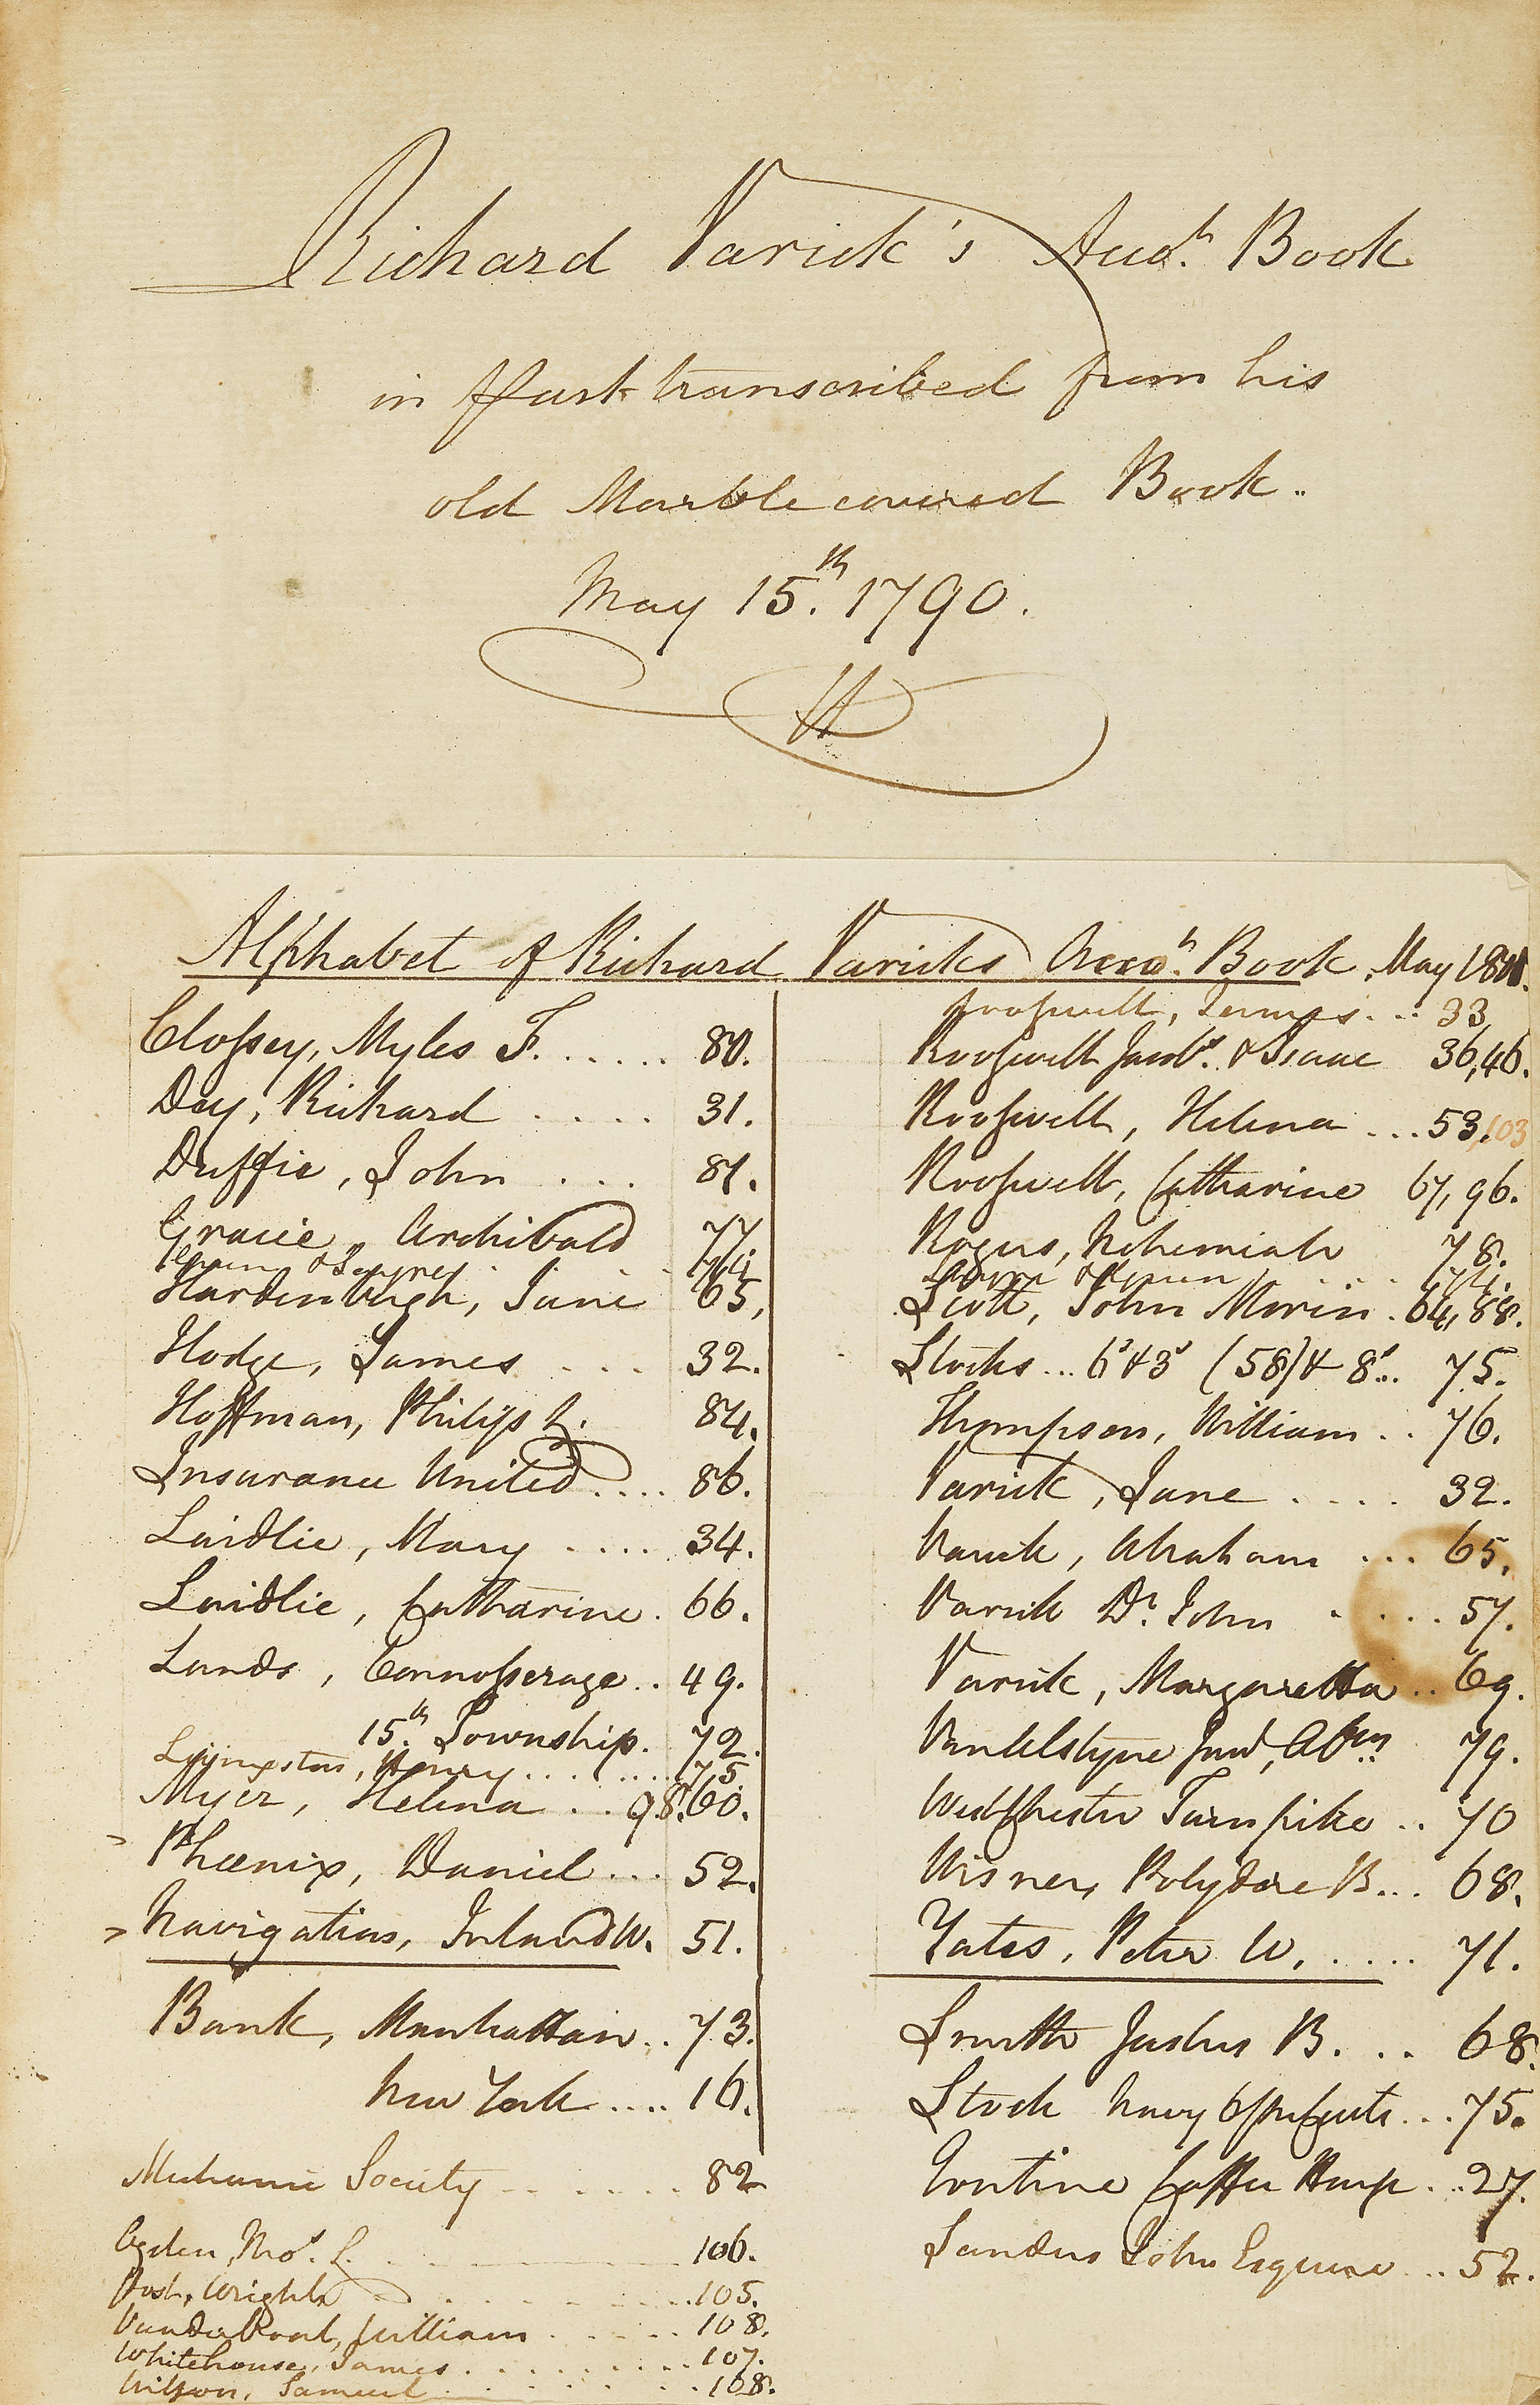 Richard Varick's Acco.t Book
in part transcribed from his
old Marble covered Book..
May 15.th 1790.
Alphabet of Richard Varicks Acco.t Book, May
Closſey, Myles F. ...... 80.
Day, Richard ..... 31.
Duffie, John .... 81.
Gracie, Archibald 77
& Sayres . . . 74
Hardenbergh, Jane 65,
Hodge, James .... 32.
Hoffman, Philip L. 84.
Insurance United .... 86.
Laidlie, Mary .... 34.
Laidlie, Catharine . 66.
Lands, Connosserage .. 49.
15.th Township. 72.
Livingston, Henry ........ 75.
Myer, Helena .. 98.60.
Phœnix, Daniel ... 52.
Navigation, Inland W. 51.
Bank, Manhattan .. 73.
New York .... 16.
Mechanic Society ....... 82
Ogden, Tho.s L. 106.
Post, Wright ........ 105.
William ..... 108.
Whitehouse, James ......... 107.
Wilson, Samuel ....... 108.
Rooſevelt, James... 33
Rooſevelt Jacob.s & Isaac 36,46.
Rooſevelt, Helena ... 53,103
Rooſevelt, Catharine 67, 96.
Rogers, Nehemiah 78.
Sayres & .... 74.
Scott, John Morin . 64, 88.
Stocks ... 6s & 3s (58) & 8s... 75.
Thompson, William .. 76.
Varick, Jane .... 32.
Varick, Abraham ... 65.
Varick Dr. John ..... 57.
Varick, Margaretta .. 69.
79.
Westchester Turnpike .. 70
Wisner, Polydore B... 68.
Yates, Peter W. ..... 71.
Smith Justus B. ... 68.
Stock Navy 6 pr Cents ... 75.
Tontine Coffee House ... 27.
Sanders John Esquire ... 52.